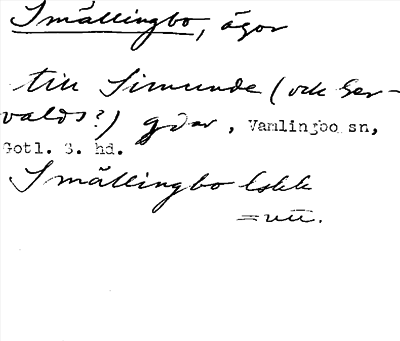 Smällingbo, ägor
till Simunde (och Ger-
valds?) gdar, Vamlingbo sn,
Gotl. S. hd.
Smällingbo Lskk